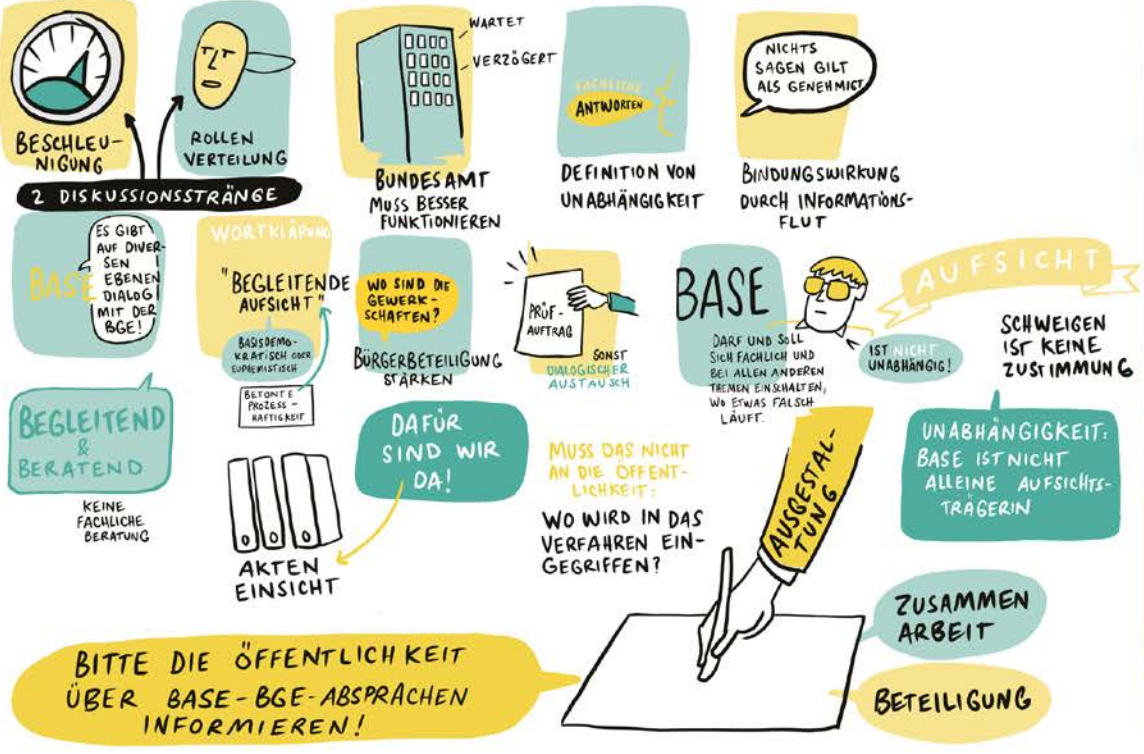 BESCHLEU-
NIGUNG
ROLLEN
VERTEILUNG
2 DISKUSSIONSSTRÄNGE
WARTET
VERZÖGERT
BUNDESAMT
MUSS BESSER
FUNKTIONIEREN
FACHLICHE
ANTWORTEN
DEFINITION VON
UNABHÄNGIGKEIT
NICHTS
SAGEN GILT
ALS GENEHMIGT
BINDUNGSWIRKUNG
DURCH INFORMATIONS-
FLUT
BASE
ES GIBT
AUF DIVER-
SEN
EBENEN
DIALOG
MIT DER
BGE!
WORTKLÄRUNG
"BEGLEITENDE
AUFSICHT"
BASISDEMO-
KRATISCH ODER
EUPHEMISTISCH
BETONTE
PROZESS-
HAFTIGKEIT
WO SIND DIE
GEWERK-
SCHAFTEN?
BÜRGERBETEILIGUNG
STÄRKEN
PRÜF-
AUFTRAG
SONST
DIALOGISCHER
AUSTAUSCH
BASE
DARF UND SOLL
SICH FACHLICH UND
BEI ALLEN ANDEREN
THEMEN EINSCHALTEN,
WO ETWAS FALSCH
LÄUFT.
IST NICHT
UNABHÄNGIG!
AUFSICHT
SCHWEIGEN
IST KEINE
ZUSTIMMUNG
UNABHÄNGIGKEIT:
BASE IST NICHT
ALLEINE AUFSICHTS-
TRÄGERIN
BEGLEITEND
&
BERATEND
KEINE
FACHLICHE
BERATUNG
AKTEN
EINSICHT
DAFÜR
SIND WIR
DA!
MUSS DAS NICHT
AN DIE ÖFFENT-
LICHKEIT:
WO WIRD IN DAS
VERFAHREN EIN-
GEGRIFFEN?
AUSGESTAL-
TUNG
ZUSAMMEN
ARBEIT
BETEILIGUNG
BITTE DIE ÖFFENTLICHKEIT
ÜBER BASE-BGE-ABSPRACHEN
INFORMIEREN!